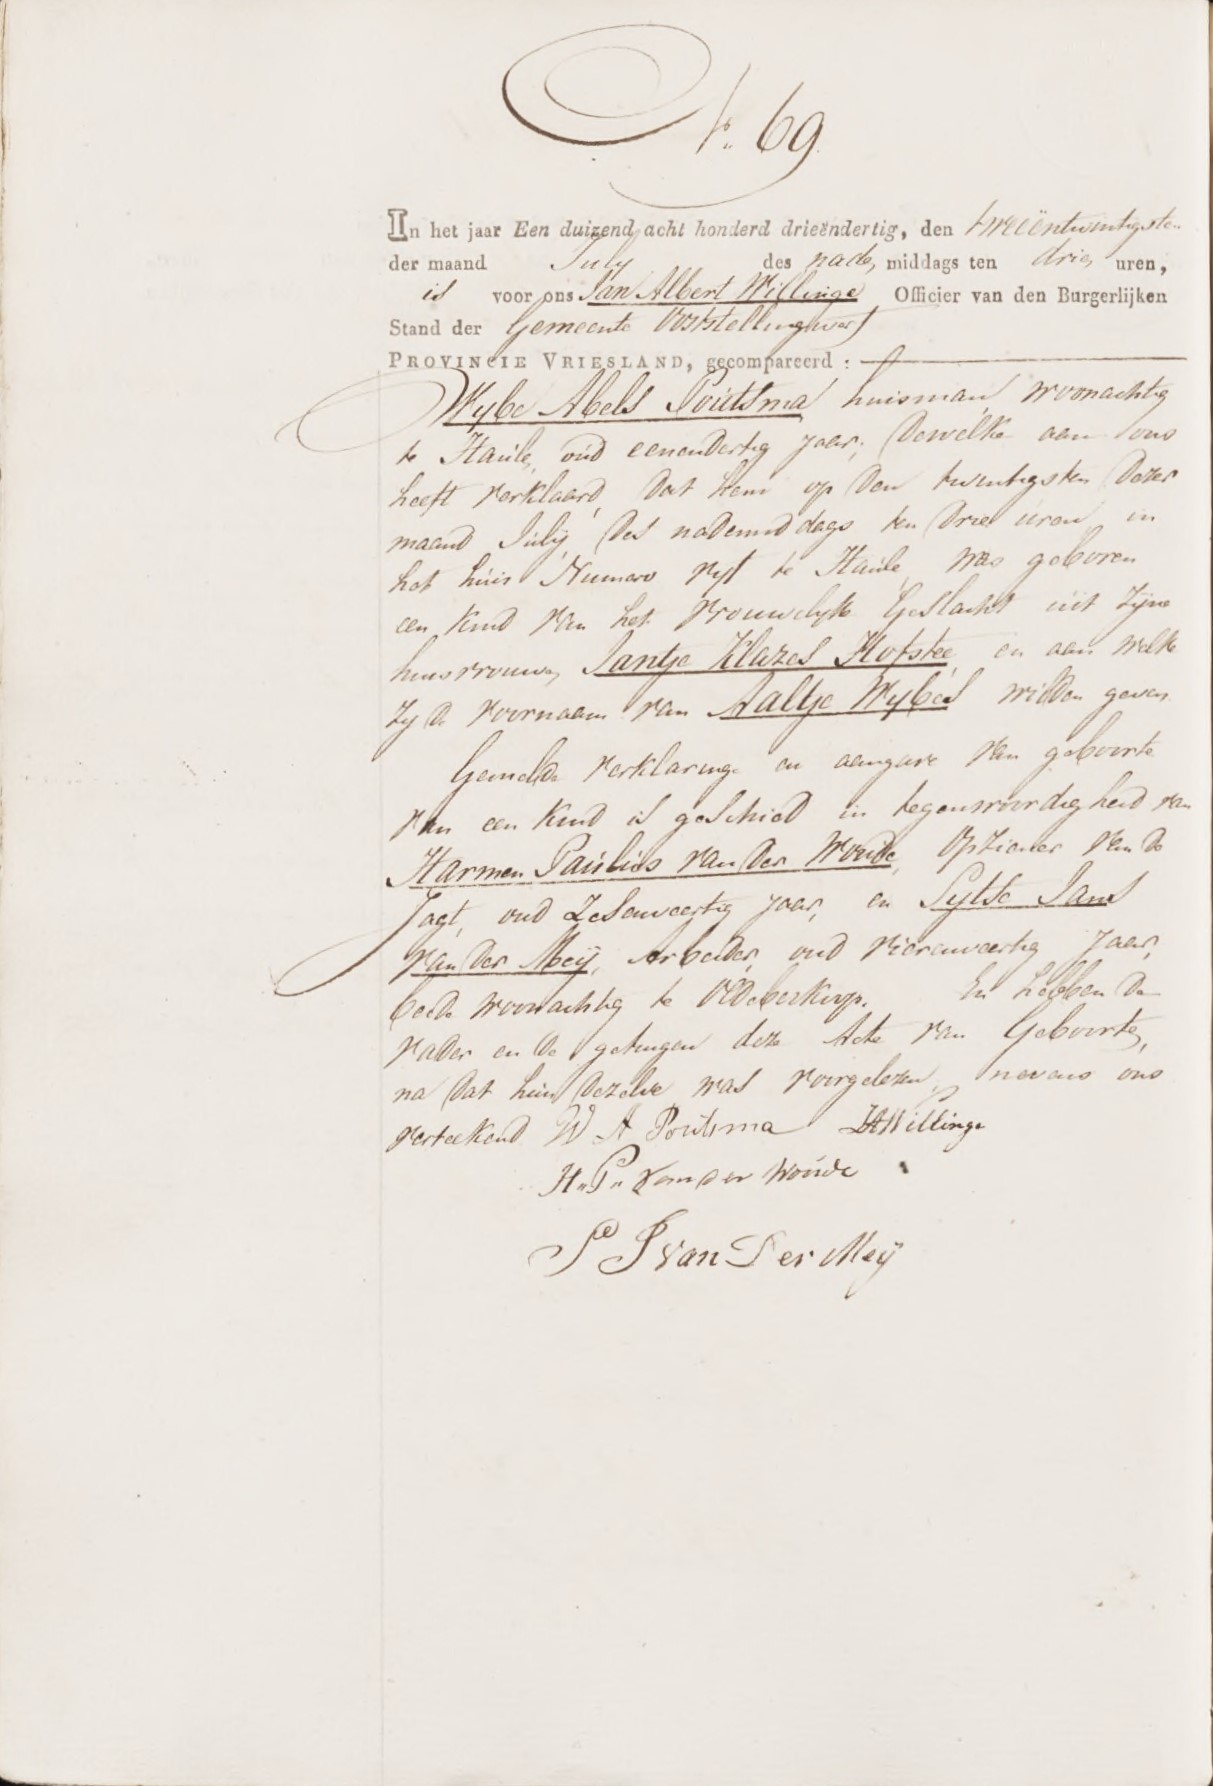 No. 69.
In het jaar Een duizend acht honderd drieëndertig, den tweeëntwintigsten
der maand July des nade middags ten drie uren,
is voor ons Jan Albert Willinge Officier van den Burgerlijken
Stand der Gemeente Ooststellingwerf
PROVINCIE VRIESLAND, gecompareerd :
Wybe Abels Poútsma huisman woonachtig
te Haúle, oud eenendertig jaar, Dewelke aan ons
heeft verklaard, dat hem op den twintigsten dezer
maand Júly, des nademiddags ten drie úren, in
het húis Numero vyf te Haúle, was geboren
een kind van het vrouwelyk Geslacht úit zyne
huisvrouw, Jantje Klazes Hofstee, en aan welke
zy de voornaam van Aaltje Wybes wilden geven.
Gemelde verklaring en aangave van geboorte
van een kind is geschied in tegenwoordigheid van
Harmen Paúlús van der Woúde, Opziener van de
Jagt, oud zesenveertig jaar, en Sytse Jans
van der Meÿ, Arbeider, oud vierenveertig jaar,
beide woonachtig te Oldeberkoop. En hebben de
vader en de getuigen deze Acte van Geboorte,
na dat hún dezelve was voorgelezen, nevens ons
verteekend W A Poútsma JAWillinge
H. P. van der Woúde
Se J van Der Meÿ